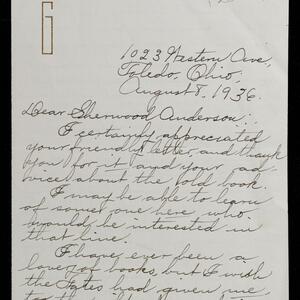 G
1023 Western Ave,
Toledo, Ohio,
August 8, 1936.
Dear Sherwood Anderson:
I certainly appreciated
your friendly letter, and thank
you for it and your ad-
vice about the fold book.
I may be able to learn
of some one here who
would be interested in
that line.
I have ever been a
lover of books, but I wish
the fates had given me